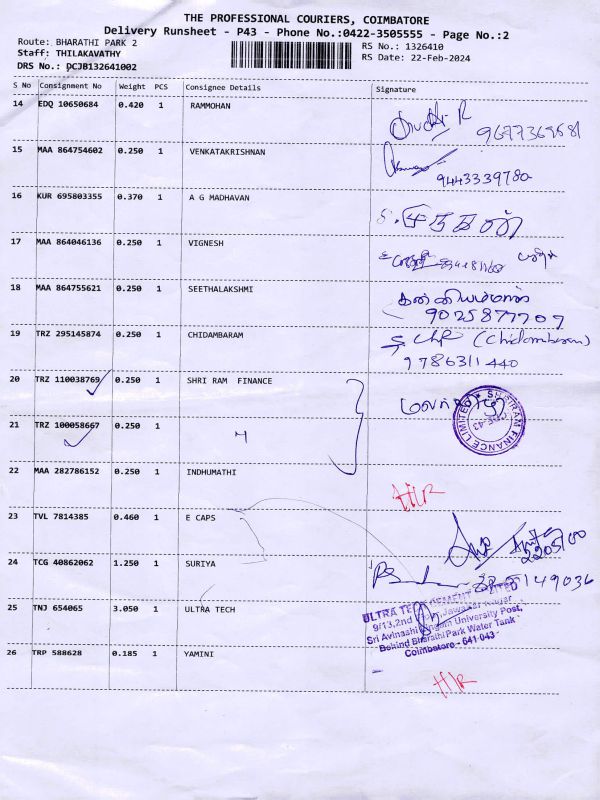 THE PROFESSIONAL COURIERS, COIMBATORE
Delivery Runsheet - P43 - Phone No.:0422-3505555 - Page No.:2
Route: BHARATHI PARK 2
RS No.: 1326410
Staff: THILAKAVATHY
RS Date: 22-Feb-2024
DRS No.: DCJB132641002
S No Consignment No Weight PCS Consignee Details Signature
14 EDQ 10650684 0.420 1 RAMMOHAN
15 MAA 864754602 0.250 1 VENKATAKRISHNAN
9443339780
16 KUR 695803355 0.370 1 A G MADHAVAN
17 MAA 864046136 0.250 1 VIGNESH
18 MAA 864755621 0.250 1 SEETHALAKSHMI
9025877707
19 TRZ 295145874 0.250 1 CHIDAMBARAM
(Chidambaram)
9786311440
20 TRZ 110038769 0.250 1 SHRI RAM FINANCE
21 TRZ 100058667 0.250 1
22 MAA 282786152 0.250 1 INDHUMATHI
23 TVL 7814385 0.460 1 E CAPS
24 TCG 40862062 1.250 1 SURIYA
25 TNJ 654065 3.050 1 ULTRA TECH
ULTRA TECH CEMENT LIMITED
9/13,2nd Jawahar Nagar
Sri Avinashilingam University Post,
Behind Bharathi Park Water Tank
Coimbatore - 641 043
26 TRP 588628 0.185 1 YAMINI